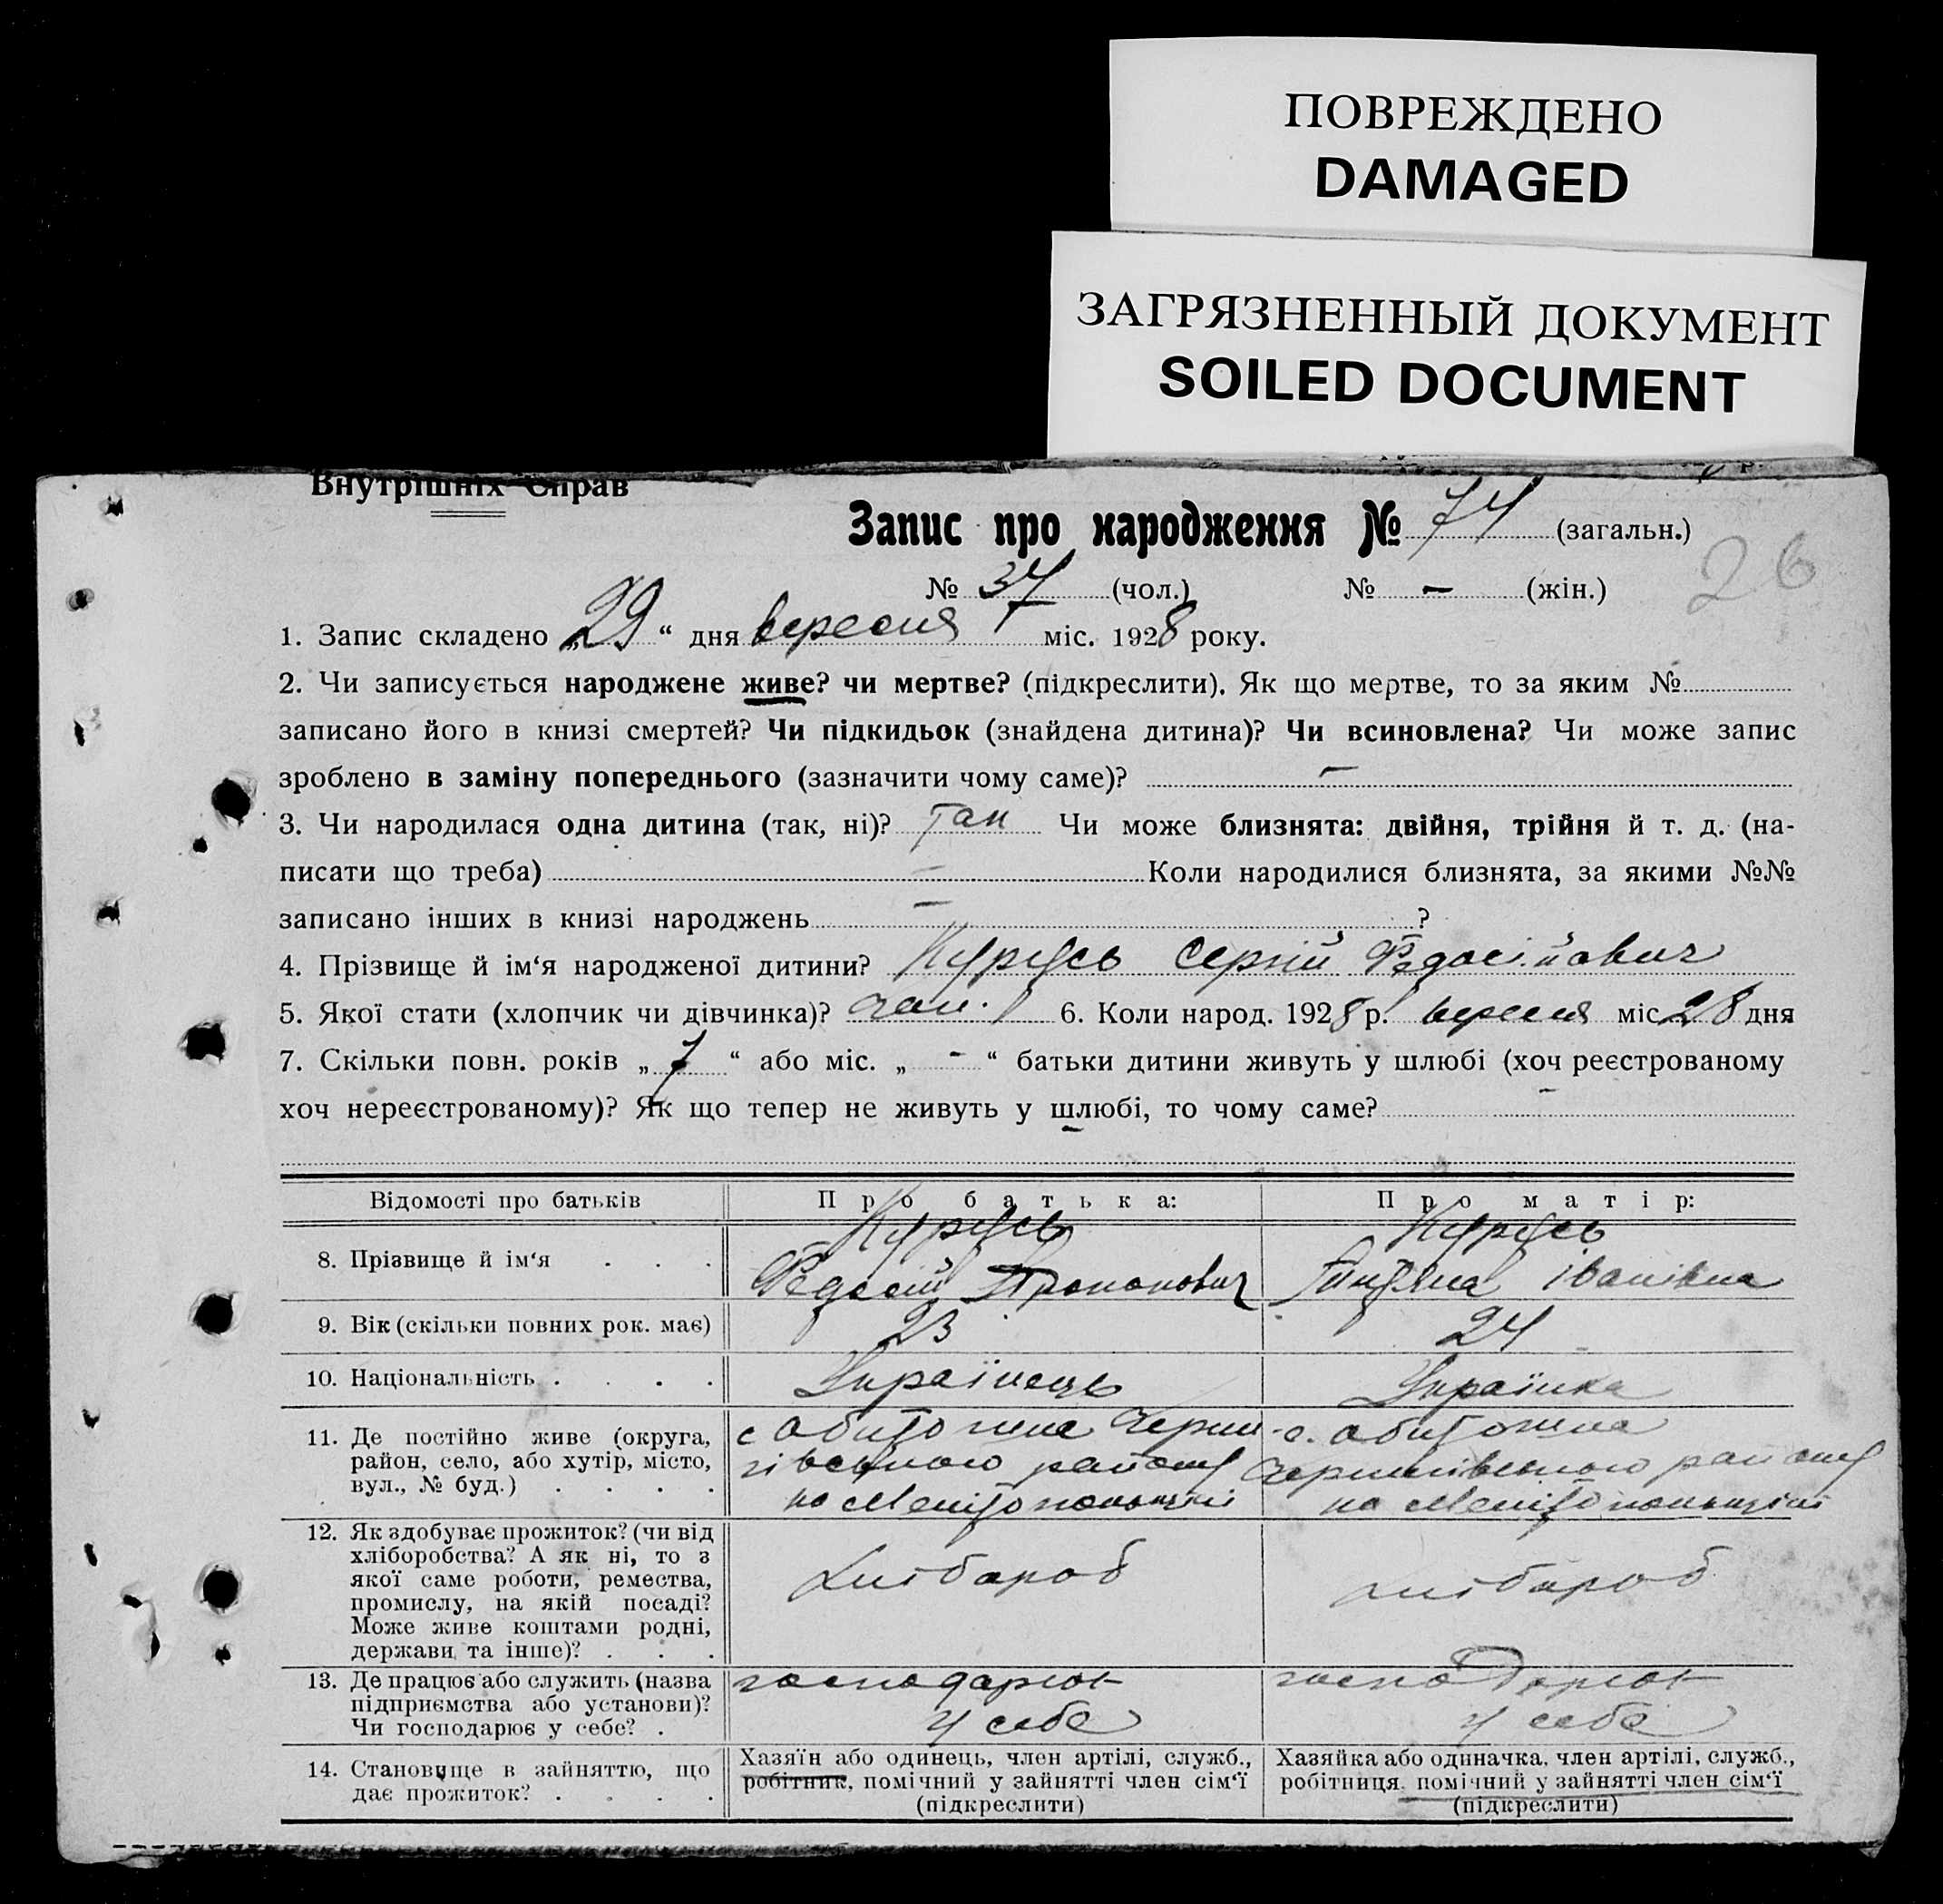 ПОВРЕЖДЕНО
DAMAGED
ЗАГРЯЗНЕННЫЙ ДОКУМЕНТ
SOILED DOCUMENT
Внутрішніх Справ
Запис про народження № 74 (загальн.)
26
№ 37 (чол.) № — (жін.)
1. Запис складено „29“ дня вересня міс. 1928 року.
2. Чи записується народжене живе? чи мертве? (підкреслити). Як що мертве, то за яким №
записано його в книзі смертей? Чи підкидьок (знайдена дитина)? Чи всиновлена? Чи може запис
зроблено в заміну попереднього (зазначити чому саме)? —
3. Чи народилася одна дитина (так, ні)? Так Чи може близнята: двійня, трійня й т. д. (на-
писати що треба) — Коли народилися близнята, за якими №№
записано інших в книзі народжень — ?
4. Прізвище й ім‘я народженої дитини? Курусь Сергій Федосійович
5. Якої стати (хлопчик чи дівчинка)? чол. 6. Коли народ. 1928 р. вересня міс. 28 дня
7. Скільки повн. років „7“ або міс. „-“ батьки дитини живуть у шлюбі (хоч реєстрованому
хоч нереєстрованому)? Як що тепер не живуть у шлюбі, то чому саме? —
Відомості про батьків Про батька: Про матір:
Курусь Курусь
8. Прізвище й ім‘я . . . Федосій Иванівна
9. Вік (скільки повних рок. має) 23 24
10. Національність . . . . Українець Українка
11. Де постійно живе (округа, с Обиточна Черни- с. Обиточна
район, село, або хутір, місто, гівського району Чернигівського району
вул., № буд.) . . . . на Мелітопольщині на Мелітопольщині
12. Як здобуває прожиток? (чи від
хліборобства? А як ні, то з
якої саме роботи, ремества, Хлібороб хлібороб
промислу, на якій посаді?
Може живе коштами родні,
держави та інше)? . . .
13. Де працює або служить (назва господарює господарює
підприємства або установи)?
Чи господарює у себе? . у себе у себе
14. Становище в зайняттю, що Хазяїн або одинець, член артілі, служб., Хазяйка або одиначка, член артілі, служб.,
дає прожиток? . . . . робітник, помічний у зайнятті член сім‘ї робітниця, помічний у зайнятті член сім‘ї
(підкреслити) (підкреслити)